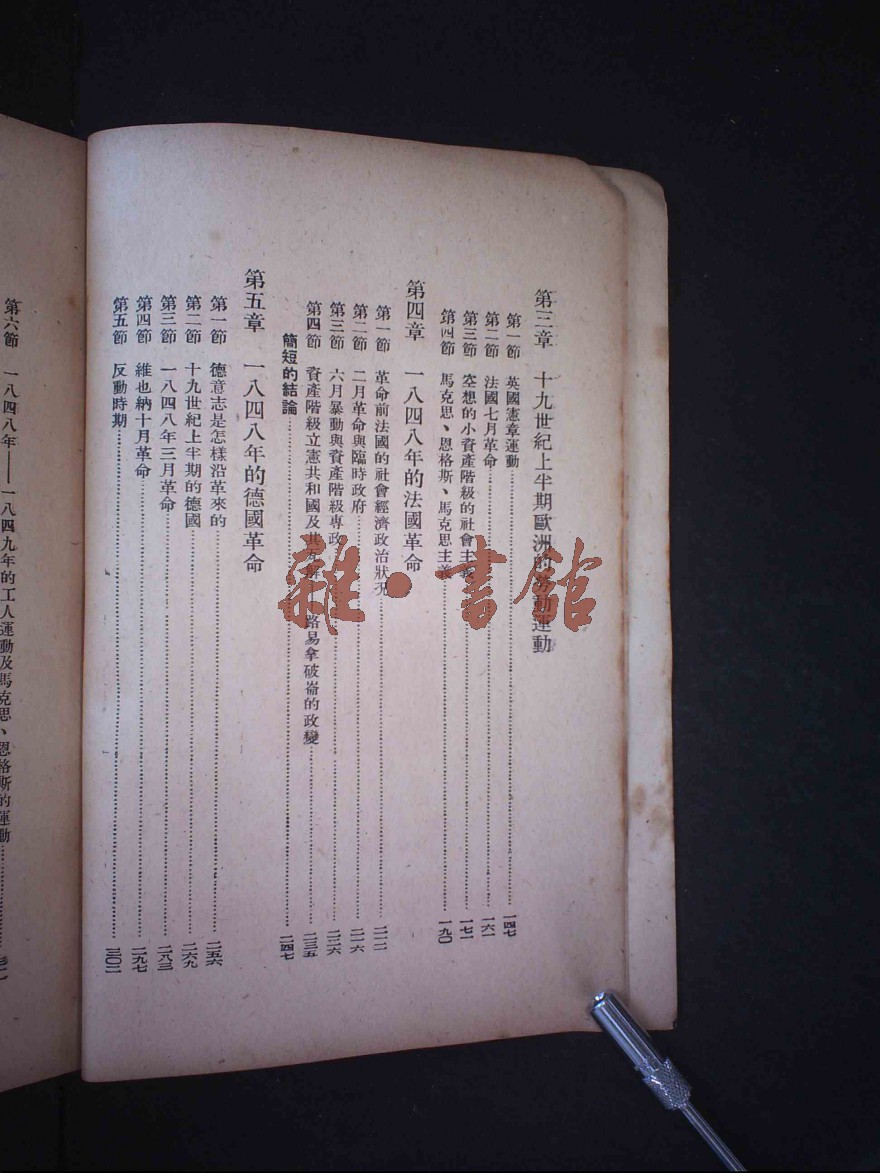 第三章 十九世紀上半期歐洲的勞動運動
第一節 英國憲章運動……一四七
第二節 法國七月革命……一六一
第三節 空想的小資產階級的社會主義……一七一
第四節 馬克思、恩格斯、馬克思主義……一九〇
第四章 一八四八年的法國革命
第一節 革命前法國的社會經濟政治狀況……二一二
第二節 二月革命與臨時政府……二一六
第三節 六月暴動與資產階級專政……二二六
第四節 資產階級立憲共和國及其瓦解——路易拿破崙的政變……二三五
簡短的結論……二四七
第五章 一八四八年的德國革命
第一節 德意志是怎樣沿革來的……二五六
第二節 十九世紀上半期的德國……二六九
第三節 一八四八年三月革命……二八三
第四節 維也納十月革命……二九七
第五節 反動時期……三〇二
第六節 一八四八年——一八四九年的工人運動及馬克思、恩格斯的運動……
雜·書館